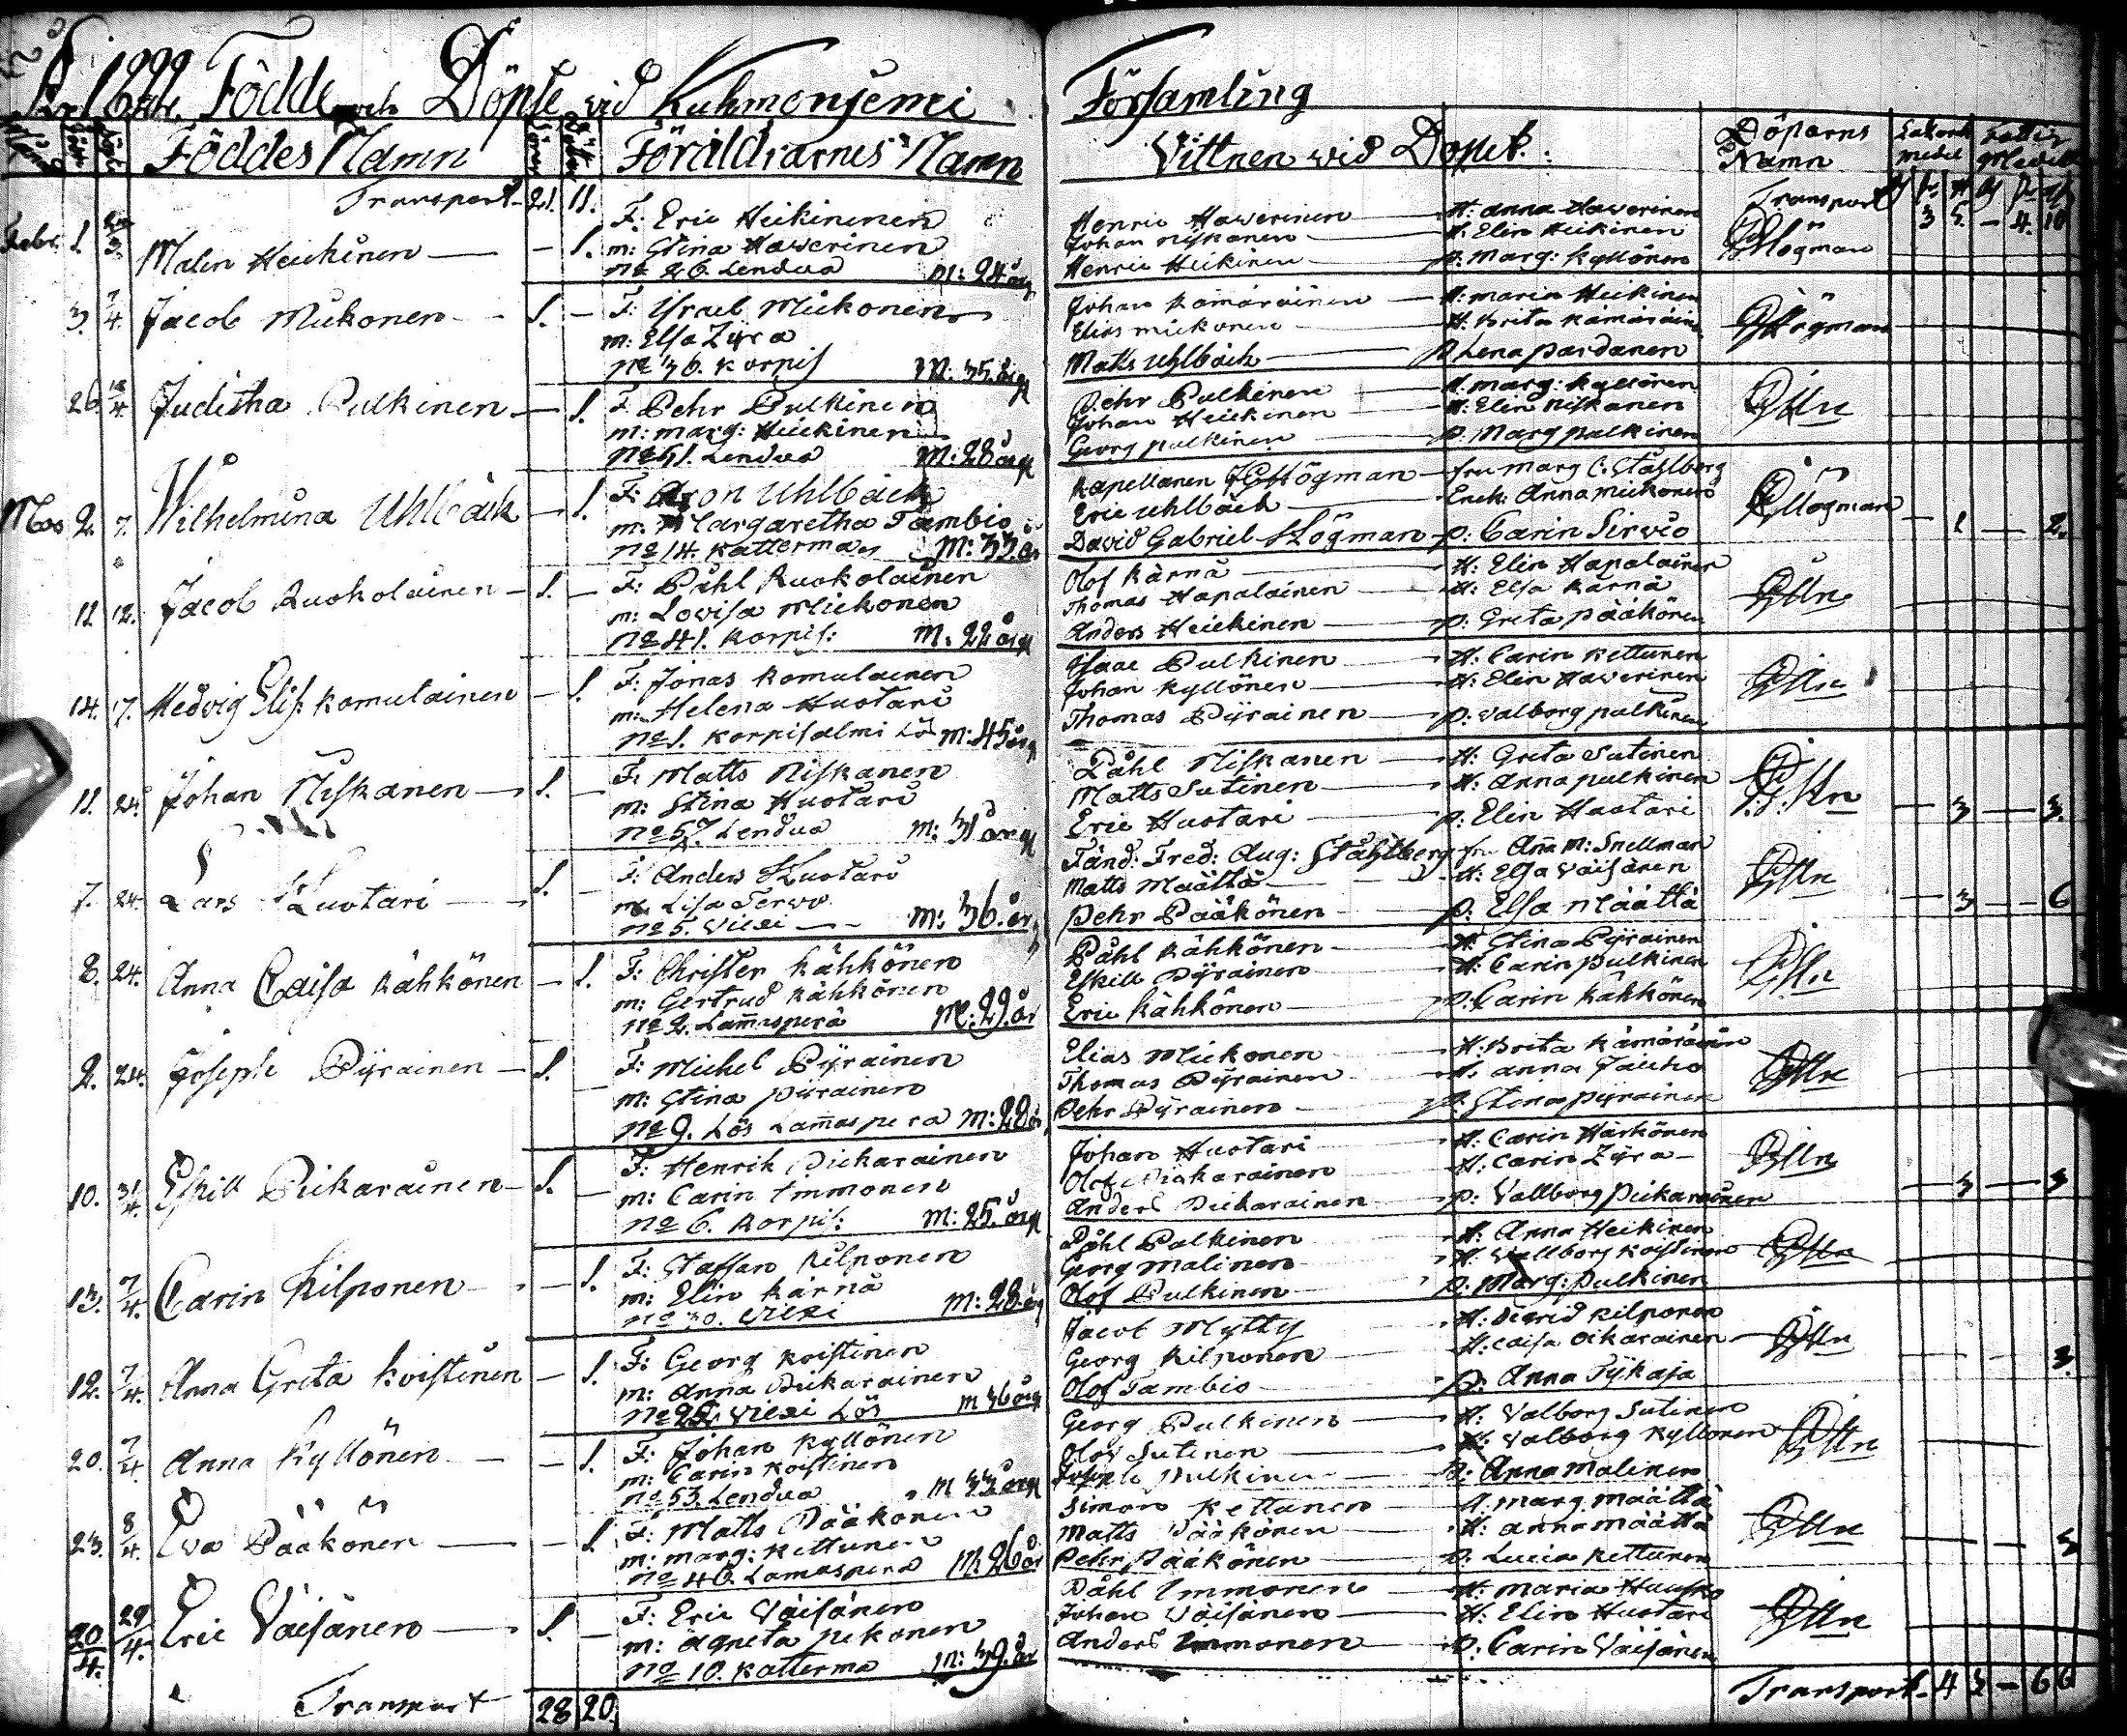 Födde och Döpte vid Kuhmonjemi Församling
Föddes Namn Föräldrarnes Namn Vittnen vid Dopet. Döparns Namn
Transport 21. 11. Transport 3 5. - 4. 10
Febr. 1. 3. Malin Heikinen - 1. F: Eric Heikinenen
m: Stina Hawerinen
No 26. Lendua M: 24 år
Henric Hawerinen H: Anna Hawerinen
Johan Niskanen H: Elin Heikinen
Henric Heikinen p: Marg: Kyllönen
3. 7/4. Jacob Mickonen 1. - F: Israel Mickonen
m: Elsa Zyra
No 36. Korpis M: 35. år
Johan Kämäräinen H: Maria Heikinen
Elias Mickonen H: Brita Kämäräin
Mats Uhlbäck p Lena Pardanen
26. /4. Juditha Pulkinen - 1. F: Pehr Pulkinen
m: Marg: Heickinen
No 51. Lendua M: 28 år
Pehr Pulkinen H: Marg: Kyllönen
Johan Heickinen H: Elin Niskanen
Georg Pulkinen p: Marg Pulkinen
Mars 2. 7. Wilhelmina Uhlbäck - 1. F: Aron Uhlbäck
m: Margaretha Tambio
No 14. Katterma M: 33. år
Kapellanen Högman fru Marg C: Ståhlberg
Eric Uhlbäck Enk: Anna Mickonen
David Gabriel Högman p: Carin Sirviö
- 1 - 2.
11 12. Jacob Ruokolainen - 1. - F: Påhl Ruokolainen
m: Lovisa Mickonen
No 41. Korpis: M: 22 år
Olof Kärnä H: Elin Hapalainen
Thomas Hapalainen H: Elsa Kärnä
Anders Heickinen p: Greta Pääkönen
14. 17. Hedvig Elis: Komulainen - 1. F: Jonas Komulainen
m: Helena Huotari
No 1. Korpisalmi Lö M: 45 år
Isaac Pulkinen H: Carin Kettunen
Johan Kyllönen H: Elin Hawerinen
Thomas Pyrainen p: Walborg Pulkinen
11. 24. Johan Niskanen 1. - F: Matts Niskanen
m: Stina Huotari
No 57. Lendua M: 31 år
Påhl Niskanen H: Greta Sutinen
Matts Sutinen H: Anna Pulkinen
Eric Huotari p: Elin Huotari
- 3 - 3.
7. 24. Lars Huotari 1. - F: Anders Huotari
m: Lisa Terwo
No 5. Viexi M: 36. år
Fänd: Fred: Aug: Ståhlberg fr Anna M: Snellman
Matts Määttä H: Elsa Väisänen
Pehr Pääkönen p: Elsa Määttä
- 3 - 6
8. 24. Anna Caisa Kähkönen - 1. F: Christer Kähkönen
m: Gertrud Kähkönen
No 2. Lam̄asperä M: 29. år
Påhl Kähkönen H: Stina Pyrainen
Eskill Pyrainen H: Carin Pulkinen
Eric Kähkönen p: Carin Kähkönen
2. 24. Joseph Pyrainen - 1. - F: Michel Pyrainen
m: Stina Pyrainen
No 9. Lös Lam̄aspera M: 28 år
Elias Mickonen H: Brita Kämäräinen
Thomas Pyrainen H: Anna
Pehr Pyrainen p: Stina Pyrainen
10. 31/4. Eskill Pickarainen 1. - F: Henrik Pickarainen
m: Carin Immonen
No 6. Korpis: M: 25. år
Johan Huotari H: Carin Härkönen
Olof Pickarainen H: Carin Zyra
Anders Pickarainen p: Vallborg Pickarainen
- 3 - 3
13. 7/4. Carin Kilponen - 1. F: Staffan Kilponen
m: Elin Kärnä
No 30. Viexi M: 28. år
Påhl Pulkinen H: Anna Heikinen
Georg Malinen H: Wallborg Koistinen
Olof Pulkinen p: Marg: Pulkinen
12. 7/4. Anna Greta Koistinen - 1. F: Georg Koistinen
m: Anna Pickarainen
No 25. Viexi Lös M 36 år
Jacob Mytty H: Kilponen
Georg Kilponen H: Caisa Oikarainen
Olof Tambio p: Anna Tykaja
3.
20. 7/4 Anna Kyllönen - 1. F: Johan Kyllönen
m: Carin Koistinen
No 53. Lendua M 33 år
Georg Pulkinen H: Valborg Sutinen
Olov Sutinen H: Valborg Kyllönen
Joseph Pulkinen p: Anna Malinen
23. 8/4. Eva Pääkönen - 1. F: Matts Pääkönen
m: Marg: Kettunen
No 40. Lamaspera M 26 år
Simon Kettunen H Marg Määttä
Matts Pääkönen H: Anna Määttä
Pehr Pääkönen p. Lucia Kettunen
3
20/4. 29/4. Eric Väisänen 1. - F: Eric Väisänen
m: Agneta Pekonen
No 10. Katterma M: 39. år
Påhl Immonen H: Maria
Johan Väisänen H: Elin Huotari
Anders Immonen p. Carin Väisänen
Transport 28 20. Transport. 4 3 - 6 6